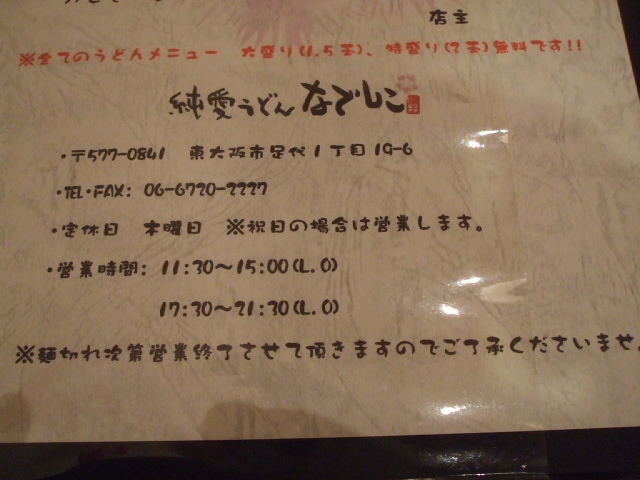 店主
※全てのうどんメニュー 大盛り(1.5玉)、特盛り(2玉)無料です!!
純愛うどん なでしこ
・〒577-0841 東大阪市足代1丁目19-6
・TEL・FAX: 06-6720-2227
・定休日 木曜日 ※祝日の場合は営業します。
・営業時間: 11:30～15:00(L.O)
17:30～21:30(L.O)
※麺切れ次第営業終了させて頂きますのでご了承くださいませ。